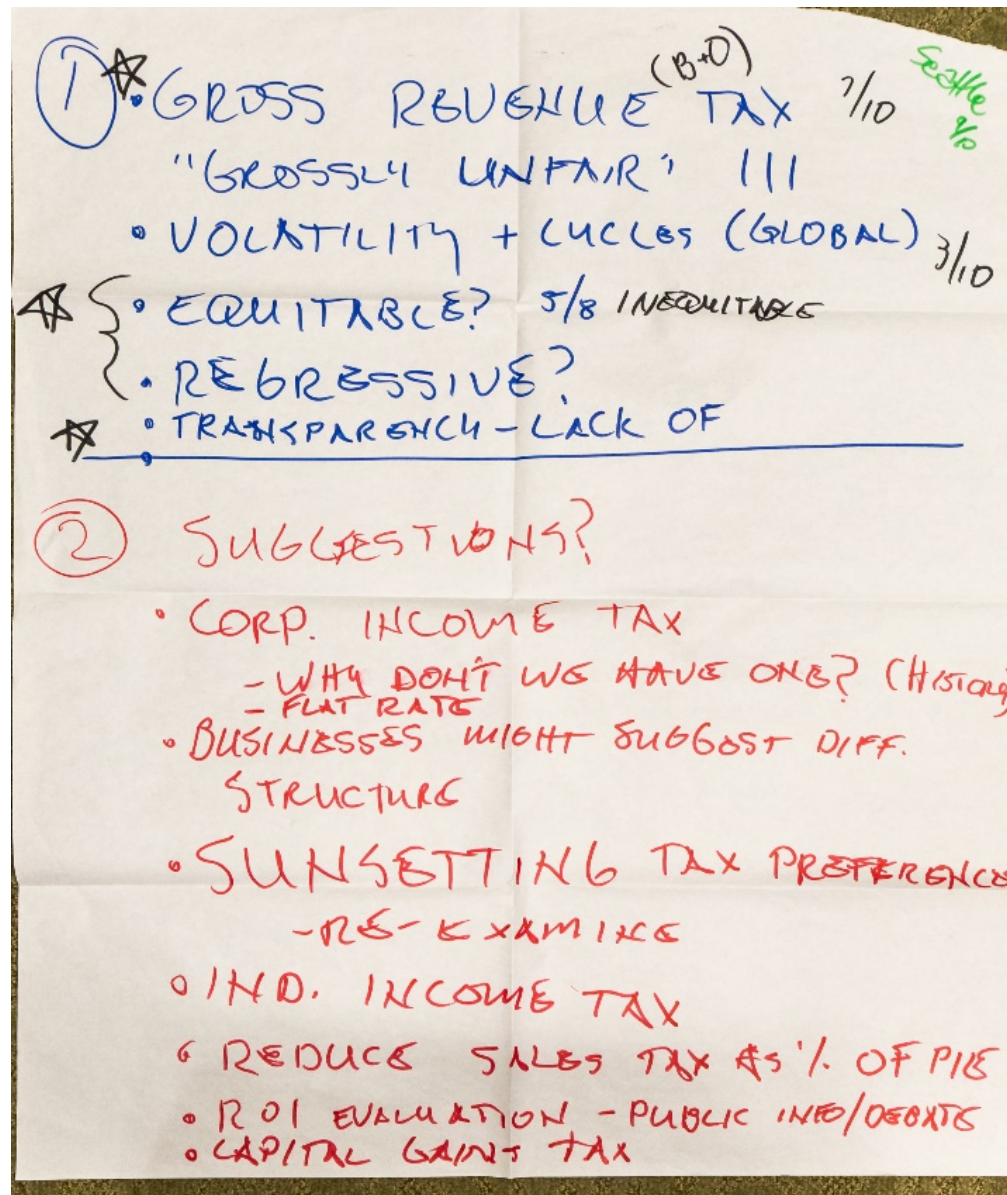 1 • GROSS REVENUE (B+O) TAX 7/10
Seattle
"GROSSLY UNFAIR" !!!
• VOLATILITY + CYCLES (GLOBAL) 3/10
• EQUITABLE? 5/8 INEQUITABLE
• REGRESSIVE?
• TRANSPARENCY - LACK OF
2 SUGGESTIONS?
• CORP. INCOME TAX
- WHY DON'T WE HAVE ONE? (HISTORY)
- FLAT RATE
• BUSINESSES MIGHT SUGGEST DIFF.
STRUCTURE
• SUNSETTING TAX PREFERENCE
- RE-EXAMINE
• IND. INCOME TAX
• REDUCE SALES TAX AS % OF PIE
• ROI EVALUATION - PUBLIC INFO/DEBATE
• CAPITAL GAINS TAX